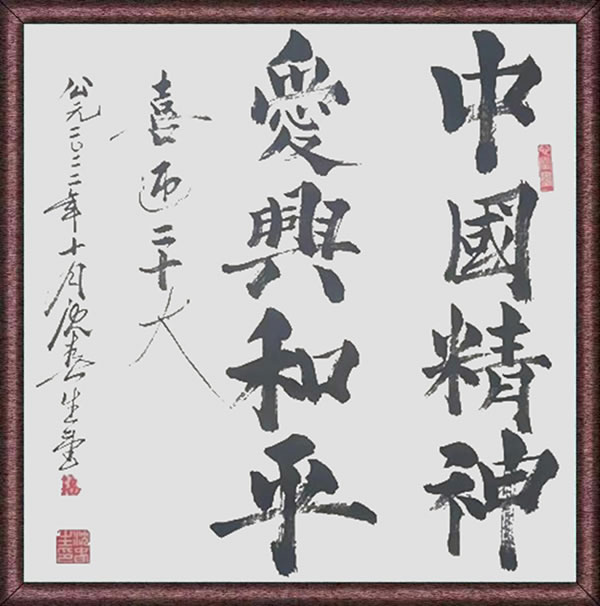 中國精神
愛興和平
喜迎二十大
公元二〇二二年十月春生